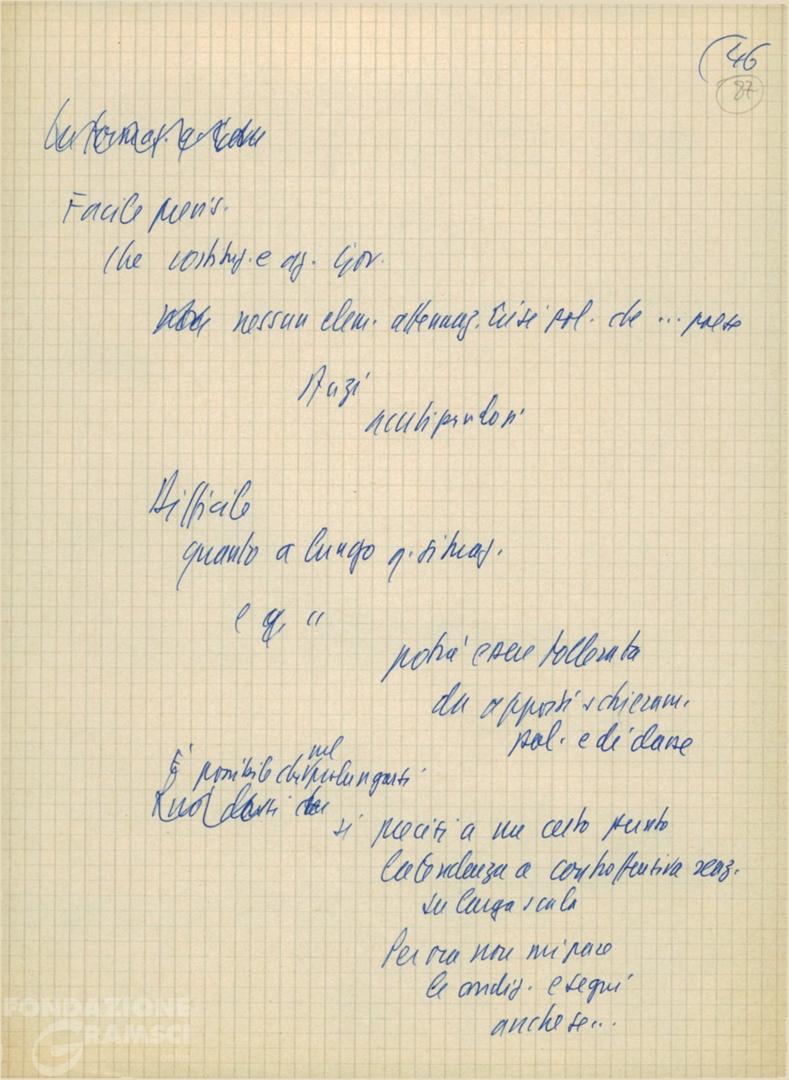 (46
87
Facile previs.
che costituz. e az. Gov.
nessun elem. attenuaz. crisi pol. che ... paese
Anzi
acutizzandosi
Difficile
quanto a lungo q. situaz.
e q. "
potrà essere tollerata
da opposti schieram.
pol. e di classe
È possibile che nel prolungarsi
si precisi a un certo punto
la tendenza a controffensiva reaz.
su larga scala
Per ora non mi pare
le condiz. e segni
anche se...
FONDAZIONE
GRAMSCI